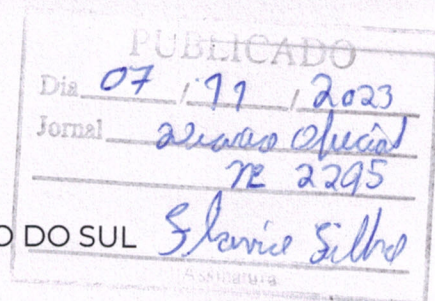 PUBLICADO
Dia 07 / 11 / 2023
Jornal Diário Oficial
nº 2295
O DO SUL
Assinatura